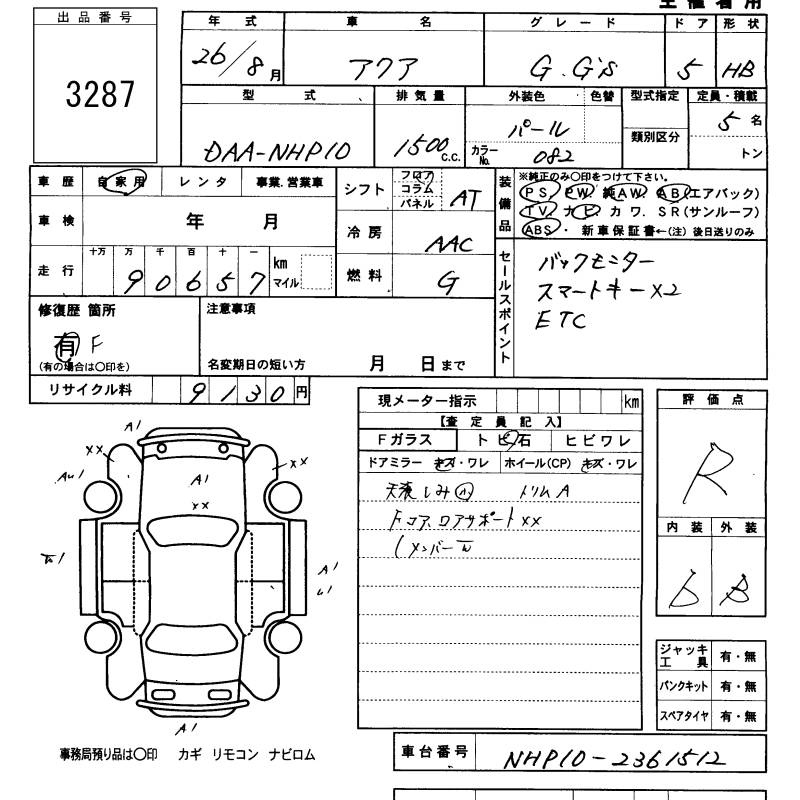 出品番号
3287
年式 車名 グレード ドア 形状
26/8月 アクア G.G's 5 HB
型式 排気量 外装色 色替 型式指定 定員・積載
DAA-NHP10 1500 C.C. パール 類別区分 5名
カラーNo. 082 トン
車歴 自家用 レンタ 事業.営業車
シフト フロア コラム パネル AT
装備品 ※純正のみ○印をつけて下さい。
PS. PW. 純AW. AB(エアバック)
TV. ナビ. カワ. SR(サンルーフ)
ABS・ 新車保証書←(注) 後日送りのみ
車検 年 月
冷房 AAC
走行 十万 万 千 百 十 一
90657 km マイル
燃料 G
セールスポイント
バックモニター
スマートキーX2
ETC
修復歴 箇所
有 F
(有の場合は○印を)
注意事項
名変期日の短い方 月 日まで
リサイクル料 9130円
現メーター指示 km
【査定員記入】
Fガラス トビ石 ヒビワレ
ドアミラー キズ・ワレ ホイール(CP) キズ・ワレ
天張しみ小 トリムA
Fコア.ロアサポートXX
メンバー
評価点
R
内装 外装
b B
A1
XX
XX
A1
XX
A1
A1
ジャッキ工具 有・無
パンクキット 有・無
スペアタイヤ 有・無
事務局預り品は○印 カギ リモコン ナビロム
車台番号 NHP10-2361512